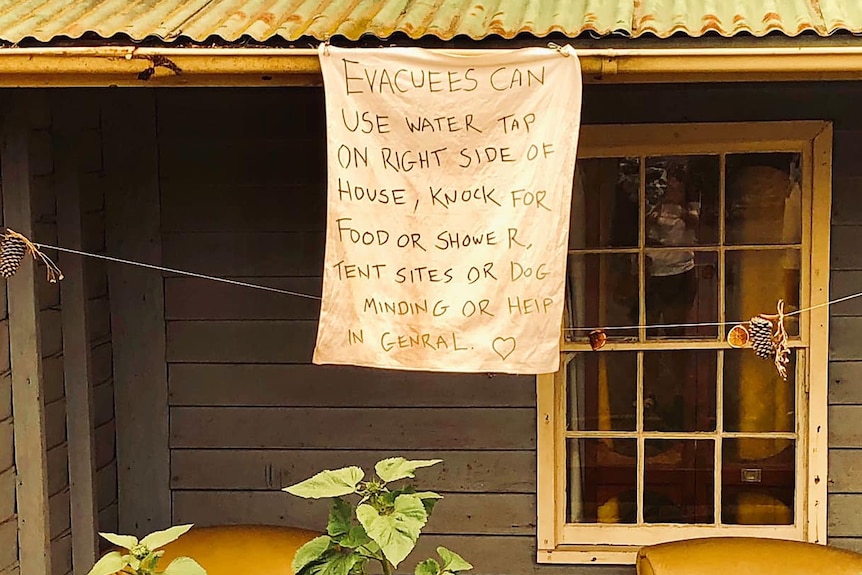 EVACUEES CAN
USE WATER TAP
ON RIGHT SIDE OF
HOUSE, KNOCK FOR
FOOD OR SHOWER,
TENT SITES OR DOG
MINDING OR HELP
IN GENRAL. ♡